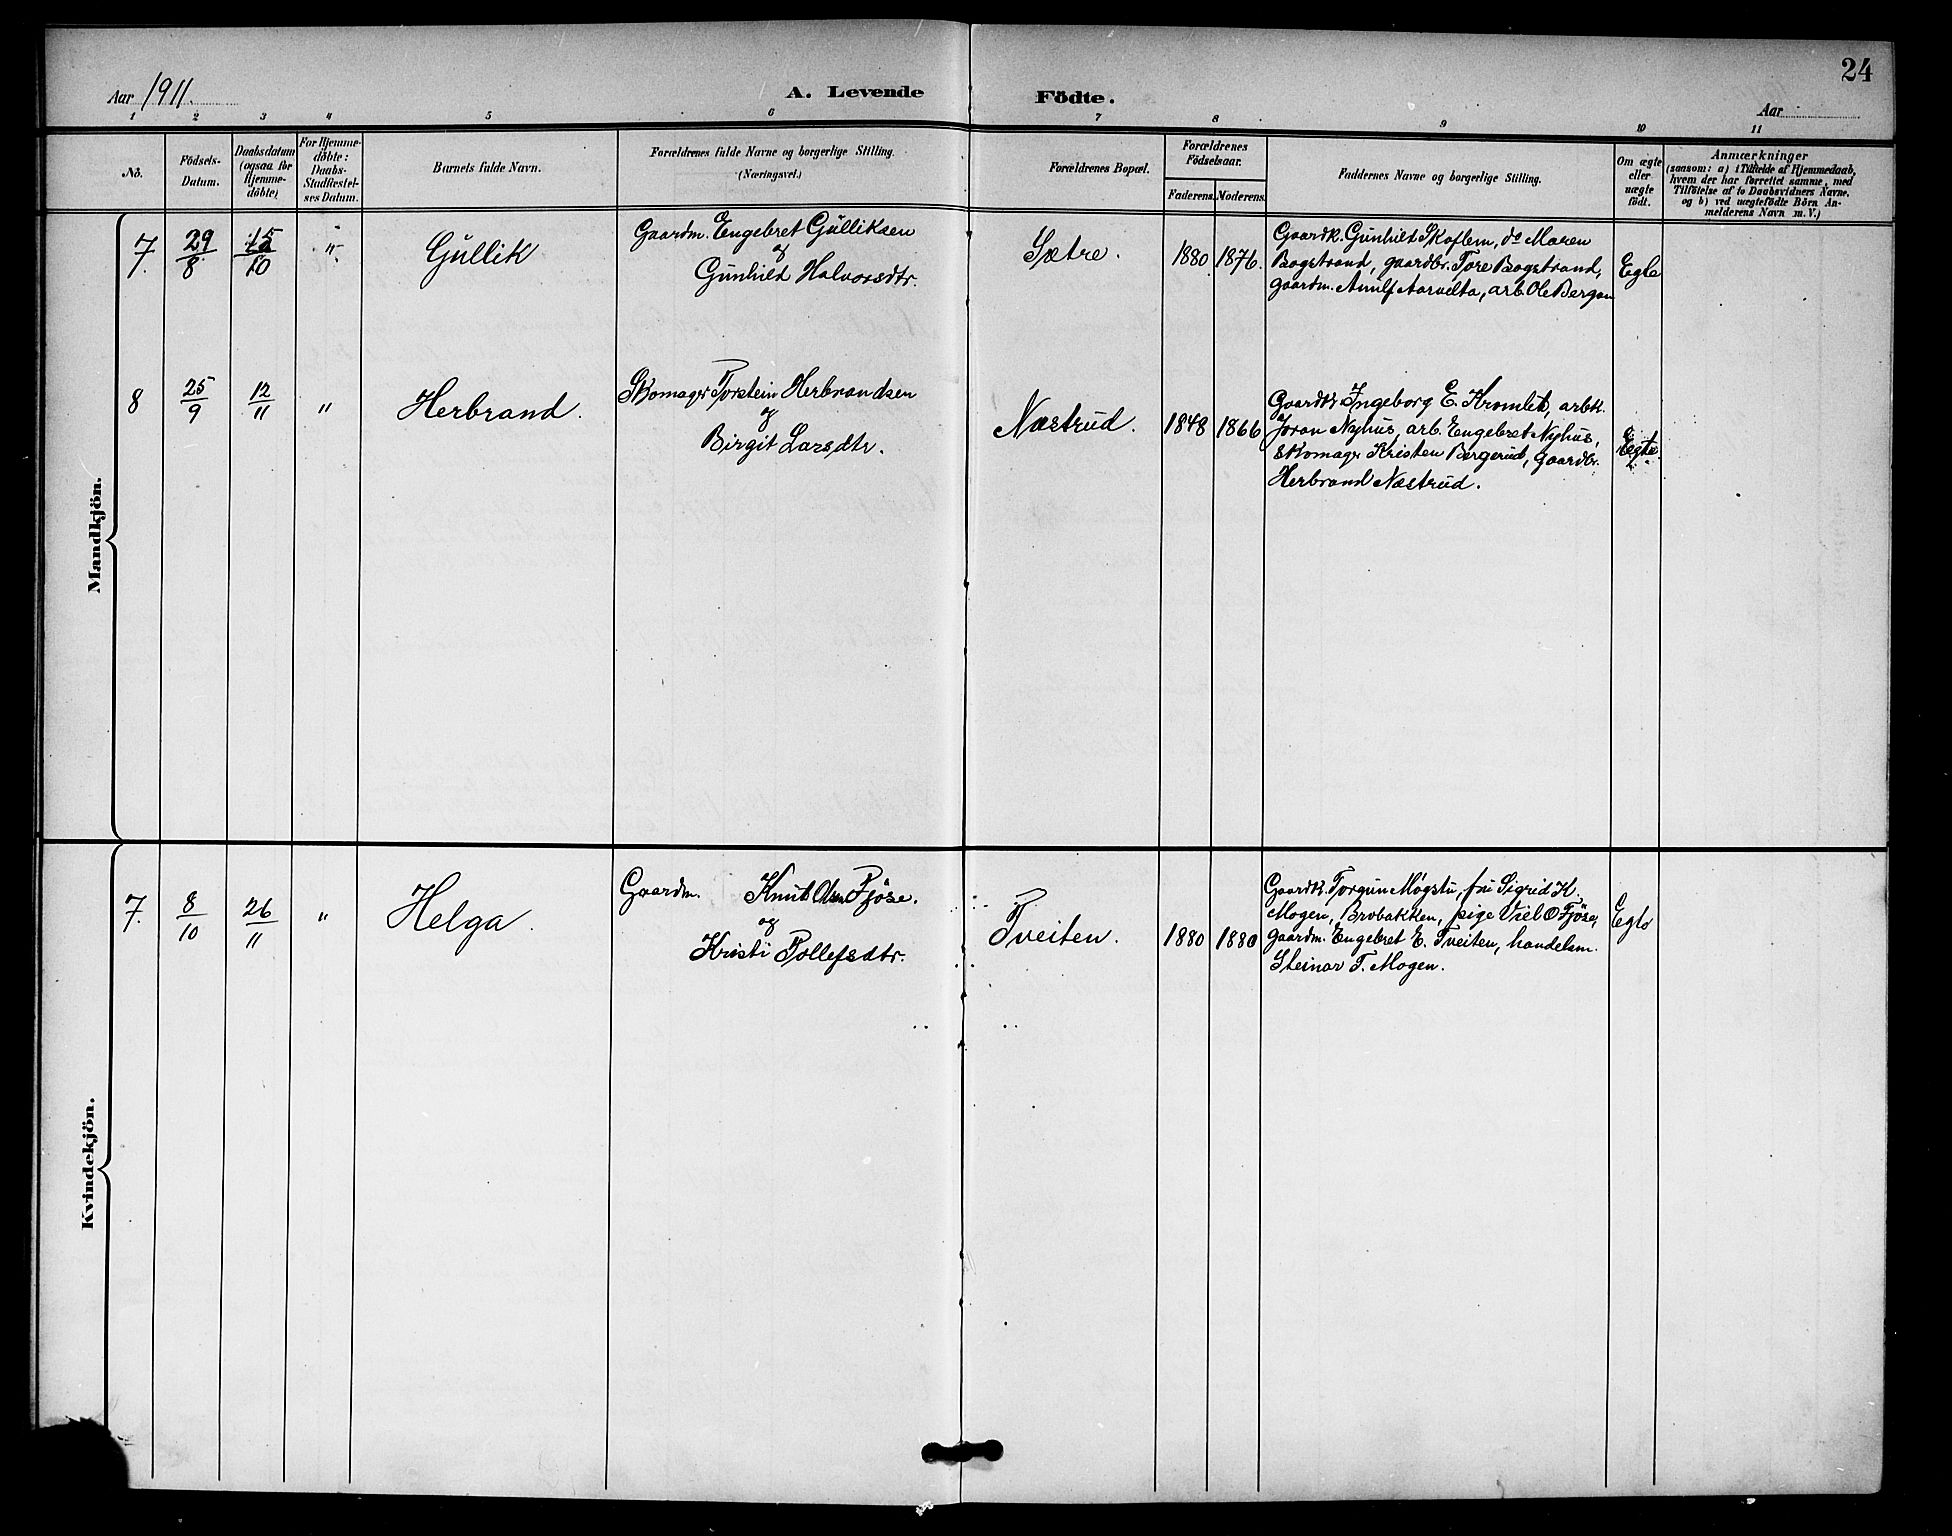 24
Aar 1911. A. Levende Födte. Aar
1 2 3 4 5 6 7 8 9 10 11
No.
Födsels-
Datum.
Daabsdatum
(ogsaa for
Hjemme-
döbte)
For Hjemme-
döbte:
Daabs-
Stadfæstel-
ses Datum.
Barnets fulde Navn.
Forældrenes fulde Navne og borgerlige Stilling.
(Næringsvei.)
Forældrenes Bopæl.
Forældrenes
Födselsaar.
Faderens. Moderens.
Faddernes Navne og borgerlige Stilling.
Om ægte
eller
uægte
födt.
Anmærkninger
(saasom: a) i Tilfælde af Hjemmedaab,
hvem der har forrettet samme, med
Tilföielse af to Daabsvidners Navne,
og b) ved uægtefödte Börn An-
melderens Navn m. V.)
Mandkjön.
7. 29/8 15/10 " Gullik
Gaardm. Engebret Gulliksen
og
Gunhild Halvorsdtr.
Sætre. 1880 1876.
Gaardk. Gunhild Skaflem, do Maren
Bagstrand, gaardbr. Tore Bagstrand,
gaardm. Arnulf Aarvelta, arb. Ole Bergan
Egte
8 25/9 12/11 " Herbrand.
Skomager Torstein Herbrandsen
og
Birgit Larsdtr.
Næstrud. 1848 1866
Gaardk. Ingeborg E. Kromlit, arbk.
Joran Nyhus, arb. Engebret Nyhus,
skomager Kristen Bergerud, gaardbr.
Herbrand Næstrud.
Egte
Kvindekjön.
7. 8/10 26/11 " Helga.
Gaardm. Knut Olsen Fjöse.
og
Kristi Tollefsdtr.
Tveiten. 1880 1880
Gaardk. Torgun Mogstu, fru Sigrid K.
Mogen, Brobakken, pige Viel O Fjöse,
gaardm. Engebret E. Tveiten, handelsm.
Steinar T. Mogen.
Egte